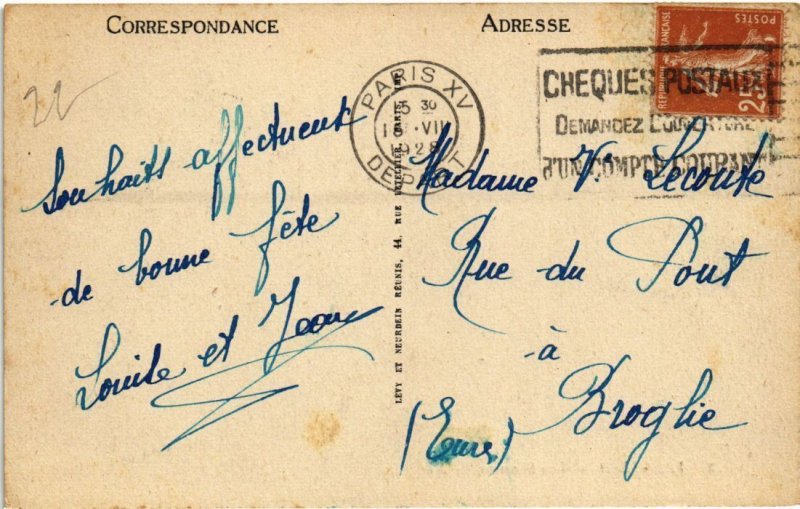 CORRESPONDANCE
22
Souhaits affectueux
de bonne fête
Louise et Jean
LÉVY ET NEURDEIN RÉUNIS, 44, RUE LETELLIER, PARIS
ADRESSE
PARIS XV
5 30
VII
1928
DEPART
CHEQUES POSTAUX
DEMANDEZ L'OUVERTURE
D'UN COMPTE COURANT
RÉPUBLIQUE FRANÇAISE
POSTES
25
Madame Ve Lecoute
Rue du Pont
à
Broglie
(Eure)